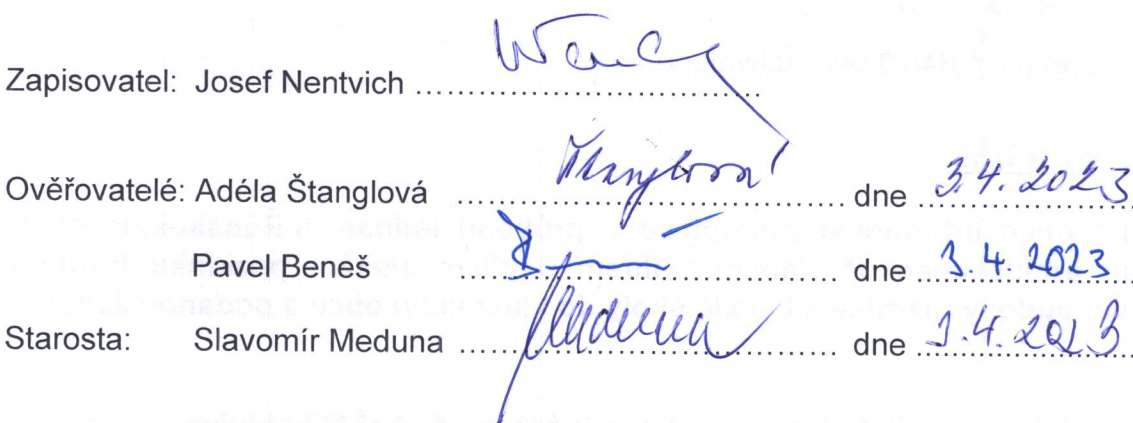 Zapisovatel: Josef Nentvich ....................................
Ověřovatelé: Adéla Štanglová Štanglová dne 3.4.2023
Pavel Beneš .................................... dne 3.4.2023
Starosta: Slavomír Meduna Meduna dne 3.4.2023